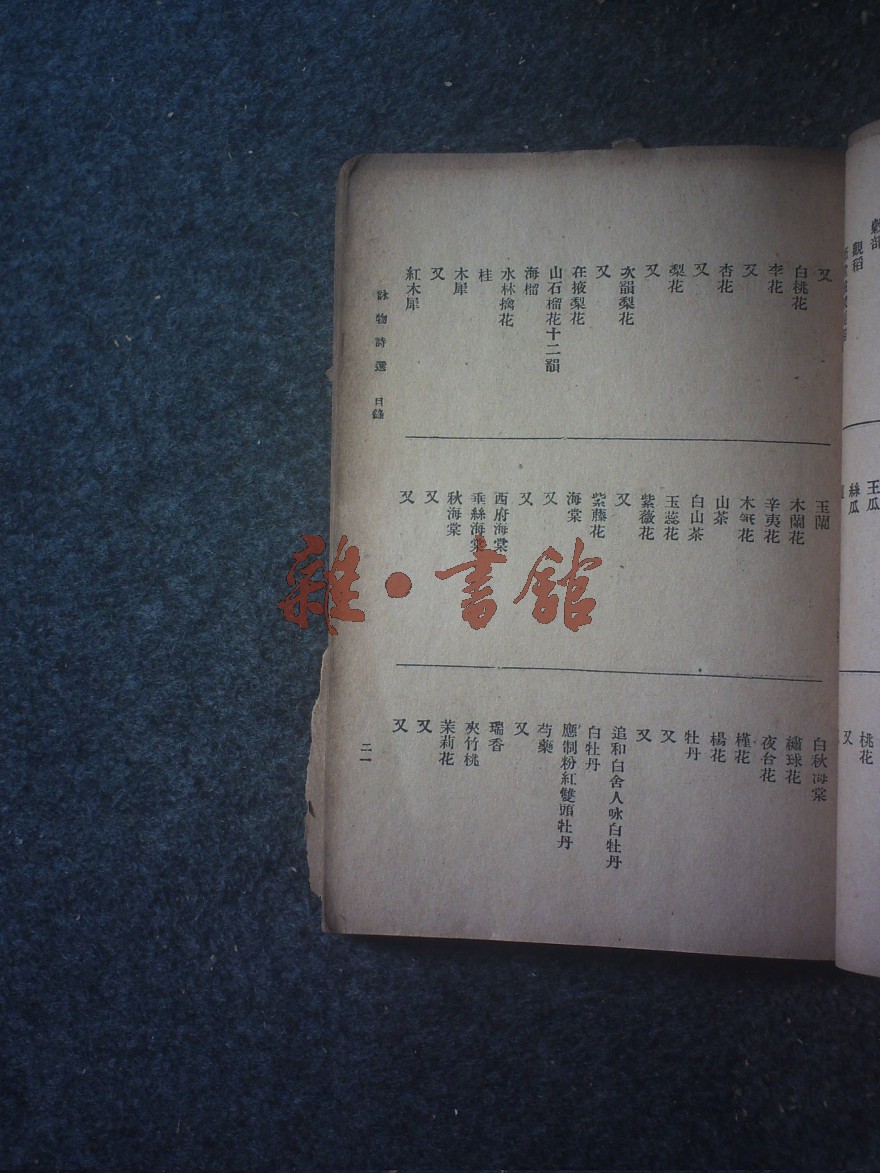 桃花
又
王瓜
絲瓜
觀稻
又
白桃花
李花
又
杏花
又
梨花
又
次韻梨花
又
在掖梨花
山石榴花十二韻
海榴
水林擒花
桂
木犀
又
紅木犀
玉蘭
木蘭花
辛夷花
木筆花
山茶
白山茶
玉蕊花
紫薇花
又
紫藤花
海棠
又
又
西府海棠
垂絲海棠
秋海棠
又
又
白秋海棠
繡球花
夜合花
槿花
楊花
牡丹
又
又
追和白舍人咏白牡丹
白牡丹
應制粉紅雙頭牡丹
芍藥
又
瑞香
夾竹桃
茉莉花
又
又
詠物詩選 目錄
二一
雜·書館